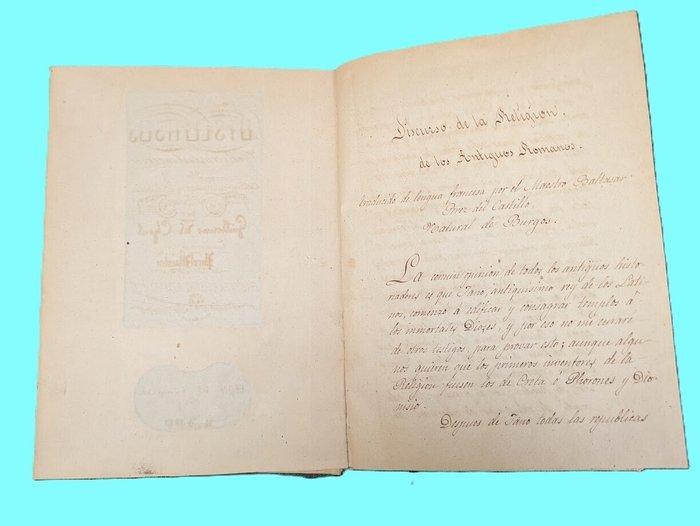 Discurso de la Religion.
de los Antiguos Romanos.
traducido de lengua francesa por el Maestro Baltasar
Prez del Castillo.
Natural de Burgos.
La comun opinion de todos los antiguos histo-
riadores es que Jano, antiquisimo rey de los Lati-
nos, comenzó á edificar y consagrar templos á
los inmortales Dioses, y por eso no me curaré
de otros testigos, para provar esto; aunque algu-
nos quieren que los primeros inventores de la
Religion fuesen los de Creta ó Phorones y Dio-
nisio.
Despues de Jano todas las republicas